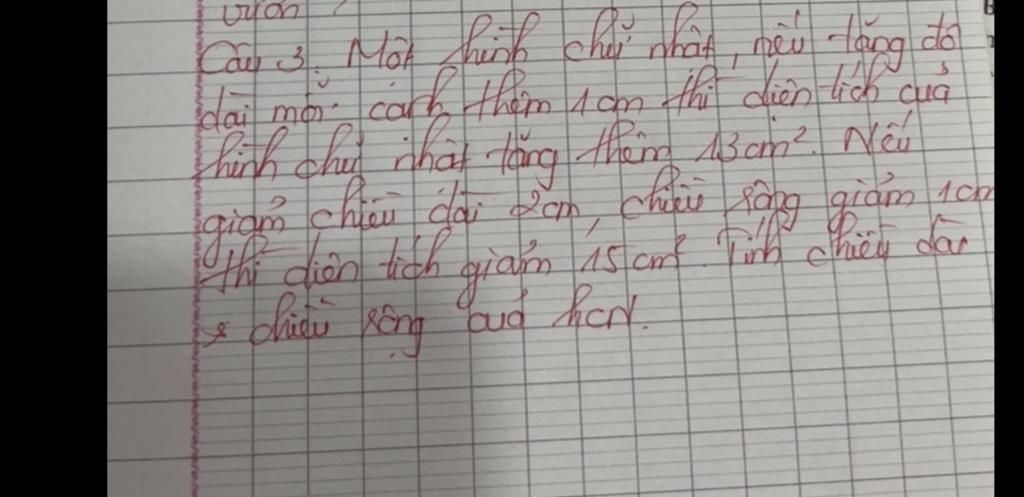 vườn
Câu 3. Một hình chữ nhật, nếu tăng độ
dài mỗi cạnh thêm 1cm thì diện tích của
hình chữ nhật tăng thêm 13cm². Nếu
giảm chiều dài 2cm, chiều rộng giảm 1cm
thì diện tích giảm 15cm². Tính chiều dài
& chiều rộng của hcn.